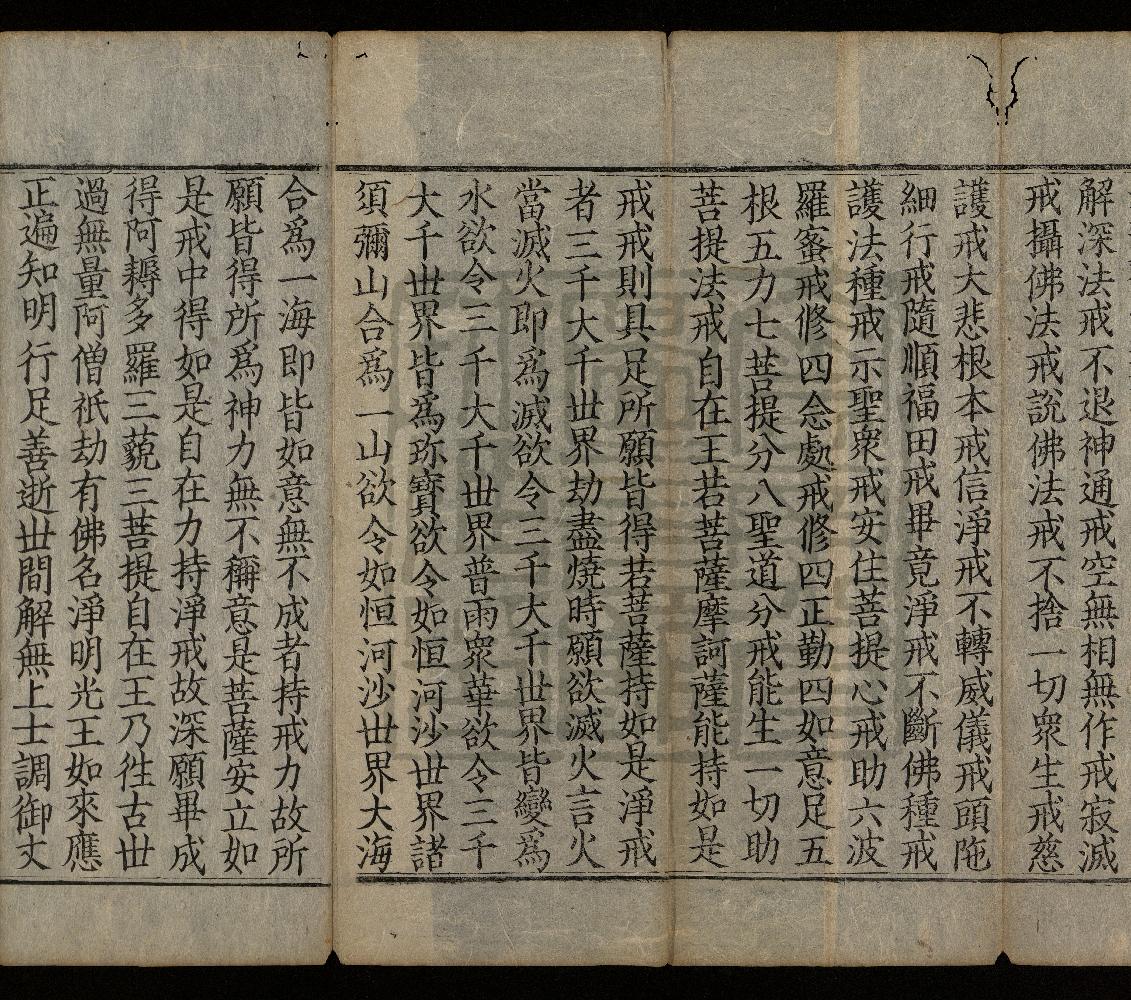 解深法戒不退神通戒空無相無作戒寂滅
戒攝佛法戒說佛法戒不捨一切衆生戒慈
護戒大悲根本戒信淨戒不轉威儀戒頭陁
細行戒隨順福田戒畢竟淨戒不斷佛種戒
護法種戒示聖衆戒安住菩提心戒助六波
羅蜜戒修四念處戒修四正勤四如意足五
根五力七菩提分八聖道分戒能生一切助
菩提法戒自在王若菩薩摩訶薩能持如是
戒戒則具足所願皆得若菩薩持如是淨戒
者三千大千世界劫盡燒時願欲滅火言火
當滅火即爲滅欲令三千大千世界皆變爲
水欲令三千大千世界普雨衆華欲令三千
大千世界皆爲珎寶欲令如恒河沙世界諸
須彌山合爲一山欲令如恒河沙世界大海
合爲一海即皆如意無不成者持戒力故所
願皆得所爲神力無不稱意是菩薩安立如
是戒中得如是自在力持淨戒故深願畢成
得阿耨多羅三藐三菩提自在王乃徃古世
過無量阿僧祇劫有佛名淨明光王如來應
正遍知明行足善逝世間解無上士調御丈